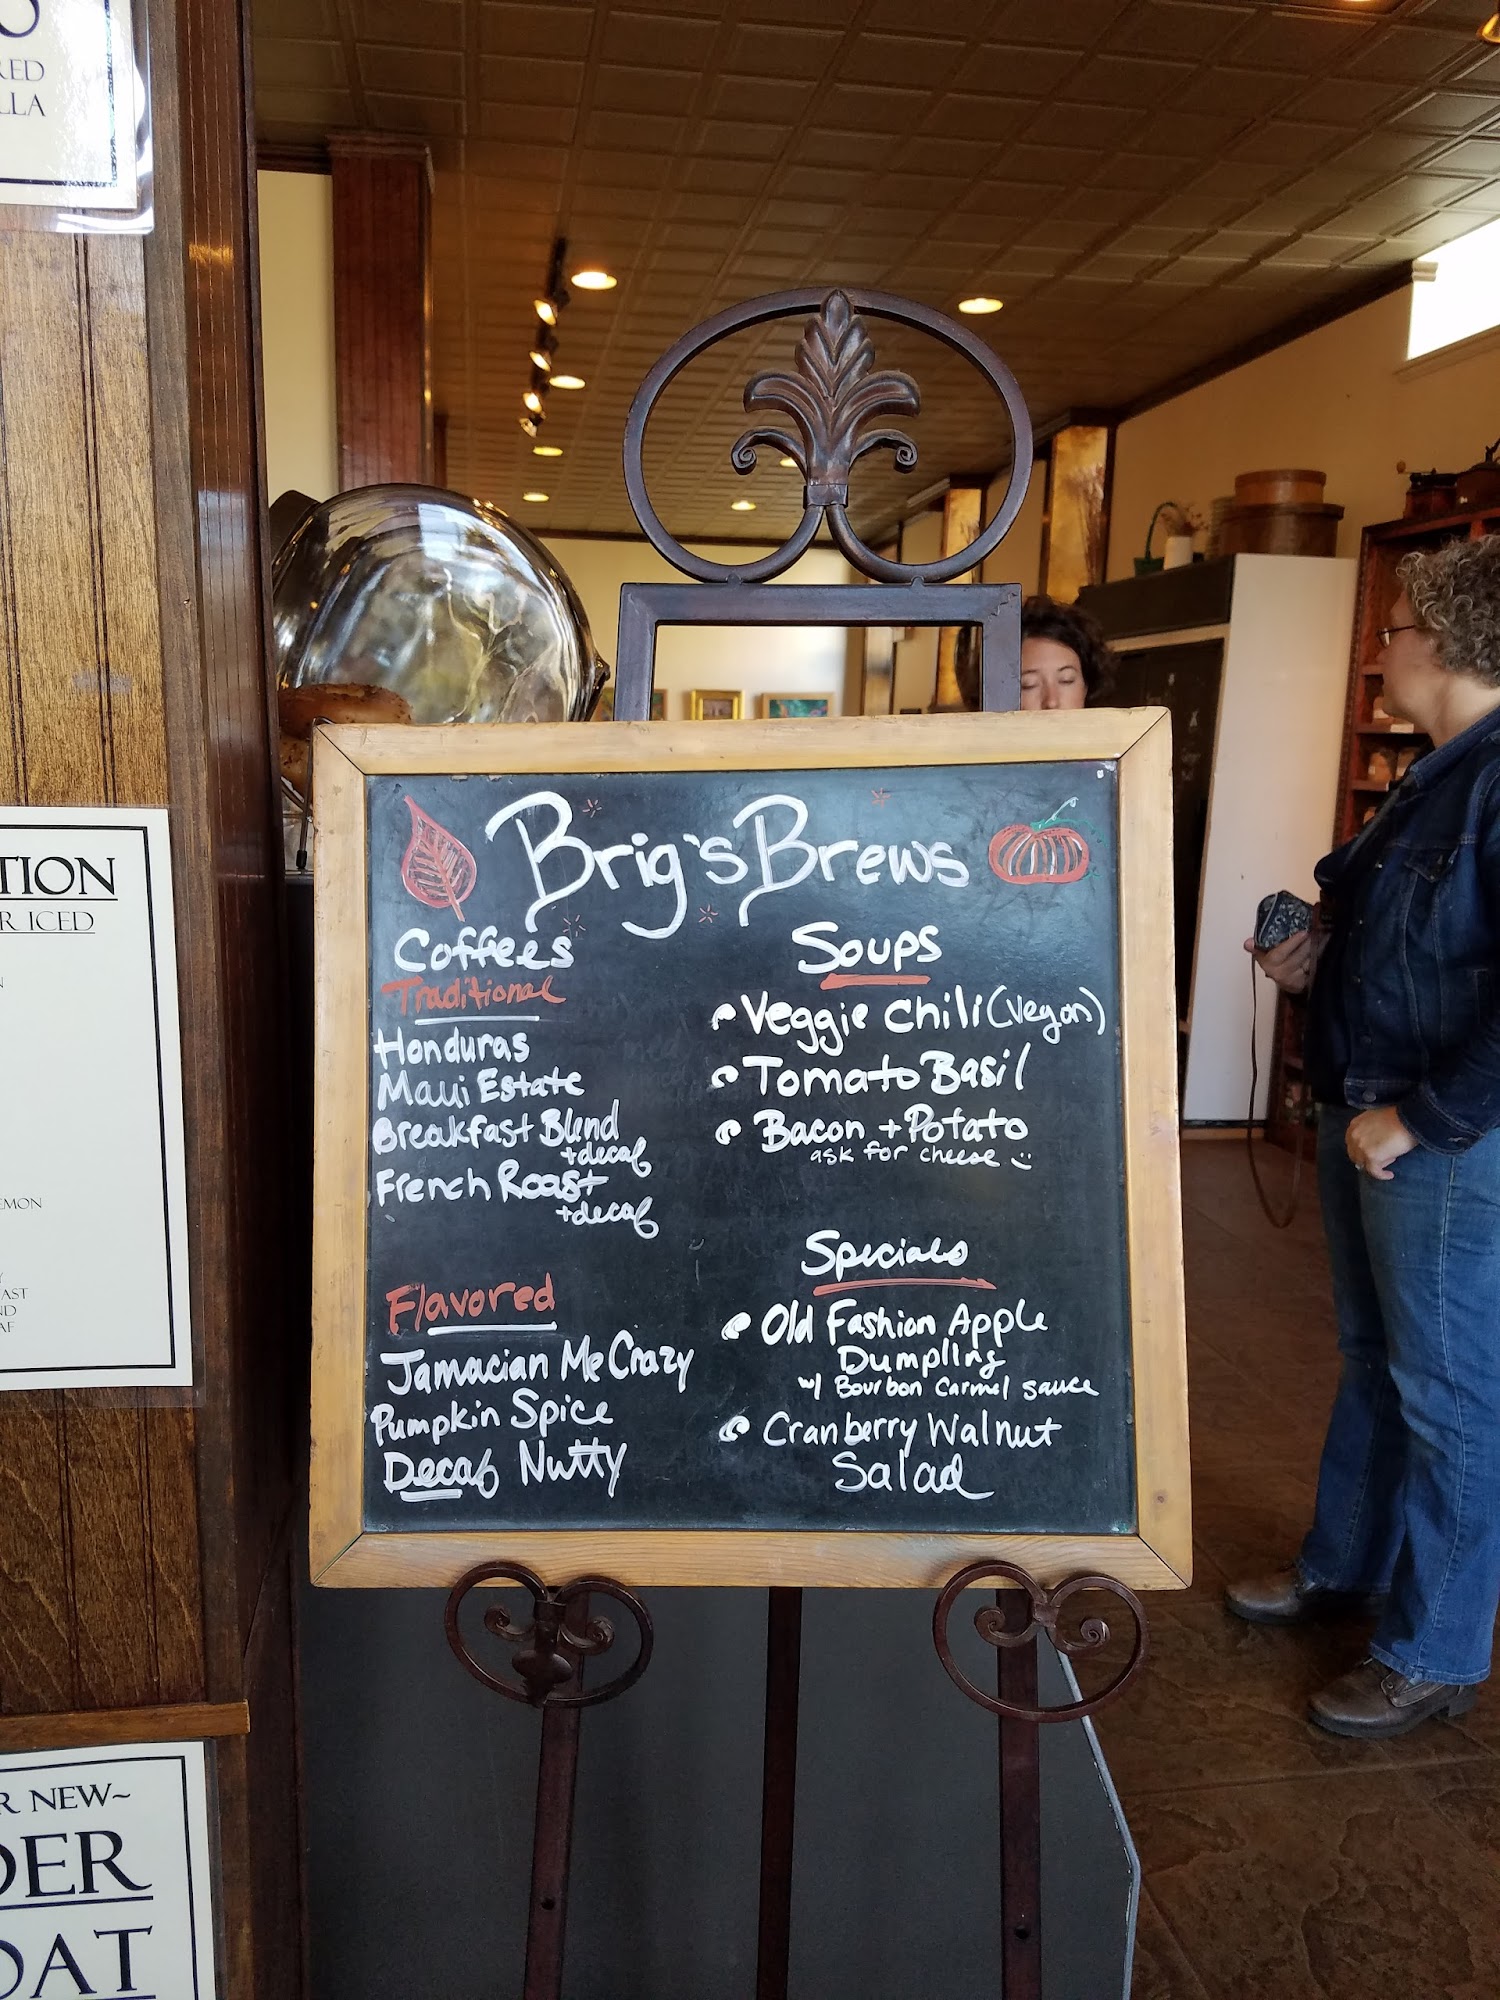 RED
LLA
TION
R ICED
EMON
Y
AST
ND
AF
R NEW~
DER
OAT
Brig's Brews
Coffees
Traditional
Honduras
Maui Estate
Breakfast Blend
+decaf
French Roast
+decaf
Flavored
Jamacian Me Crazy
Pumpkin Spice
Decaf Nutty
Soups
Veggie Chili (vegan)
Tomato Basil
Bacon + Potato
ask for cheese :)
Specials
Old Fashion Apple
Dumpling
w/ Bourbon Carmel sauce
Cranberry Walnut
Salad